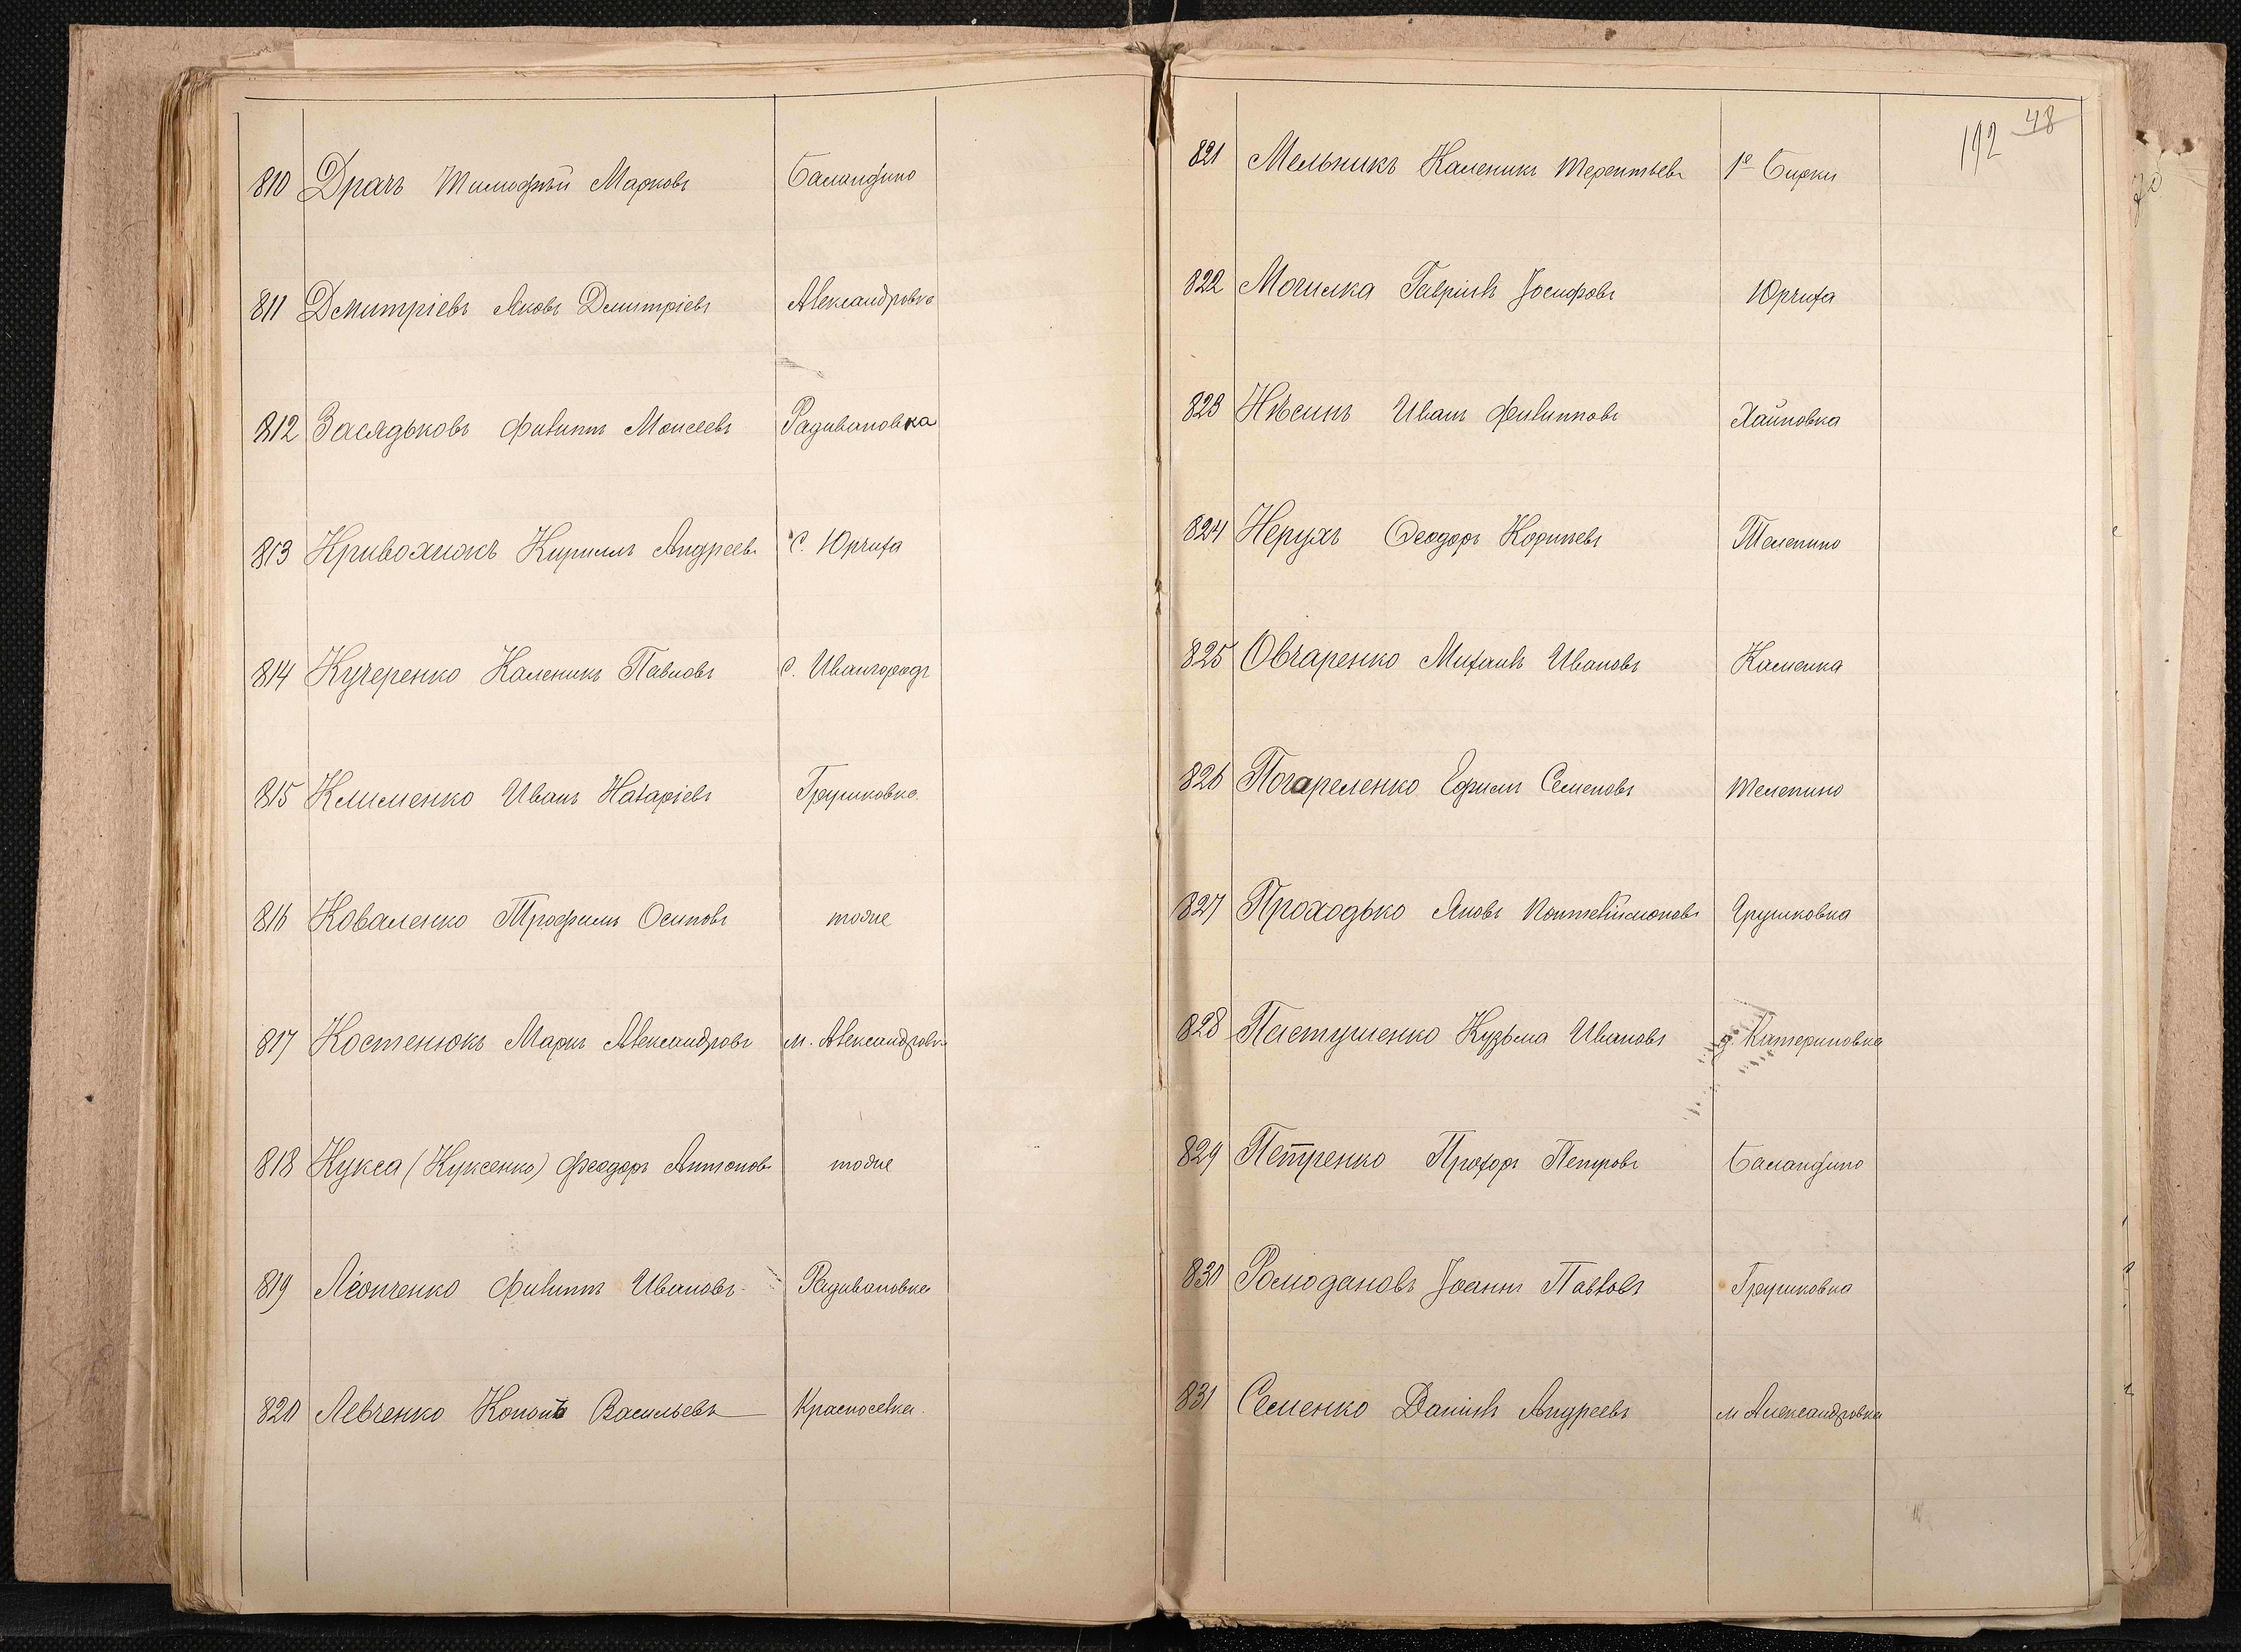 810 Драчъ Тимофѣй Марковъ Баландино
811 Дмитріевъ Яковъ Дмитріевъ Александровка
812 Засядьковъ Филиппъ Моисеевъ Радивановка
813 Кривохижъ Кириллъ Андреевъ С. Юрчиха
814 Кучеренко Каленикъ Павловъ С. Ивангородъ
815 Клименко Иванъ Назаріевъ Грушковка
816 Коваленко Трофимъ Осиповъ тоже
817 Костенюкъ Маркъ Александровъ м. Александровка
818 Кукса (Куксенко) Феодоръ Антоновъ тоже
819 Леонченко Филиппъ Ивановъ Радивановка
820 Левченко Кононъ Васильевъ Красноселка
192 48
821 Мельникъ Каленикъ Терентьевъ 1е Бирки
822 Могилка Гавріилъ Іосифовъ Юрчиха
823 Нѣсинъ Иванъ Филипповъ Хайновка
824 Нерухъ Ѳеодоръ Корніевъ Телепино
825 Овчаренко Михаилъ Ивановъ Каменка
826 Погареленко Ефимъ Семеновъ Телепино
827 Проходько Яковъ Пантелймоновъ Грушковка
828 Пастушенко Кузьма Ивановъ д. Катериновка
829 Петренко Прохоръ Петровъ Баландино
830 Ромодановъ Іоаннъ Павловъ Грушковка
831 Семенко Даніилъ Андреевъ м Александровка